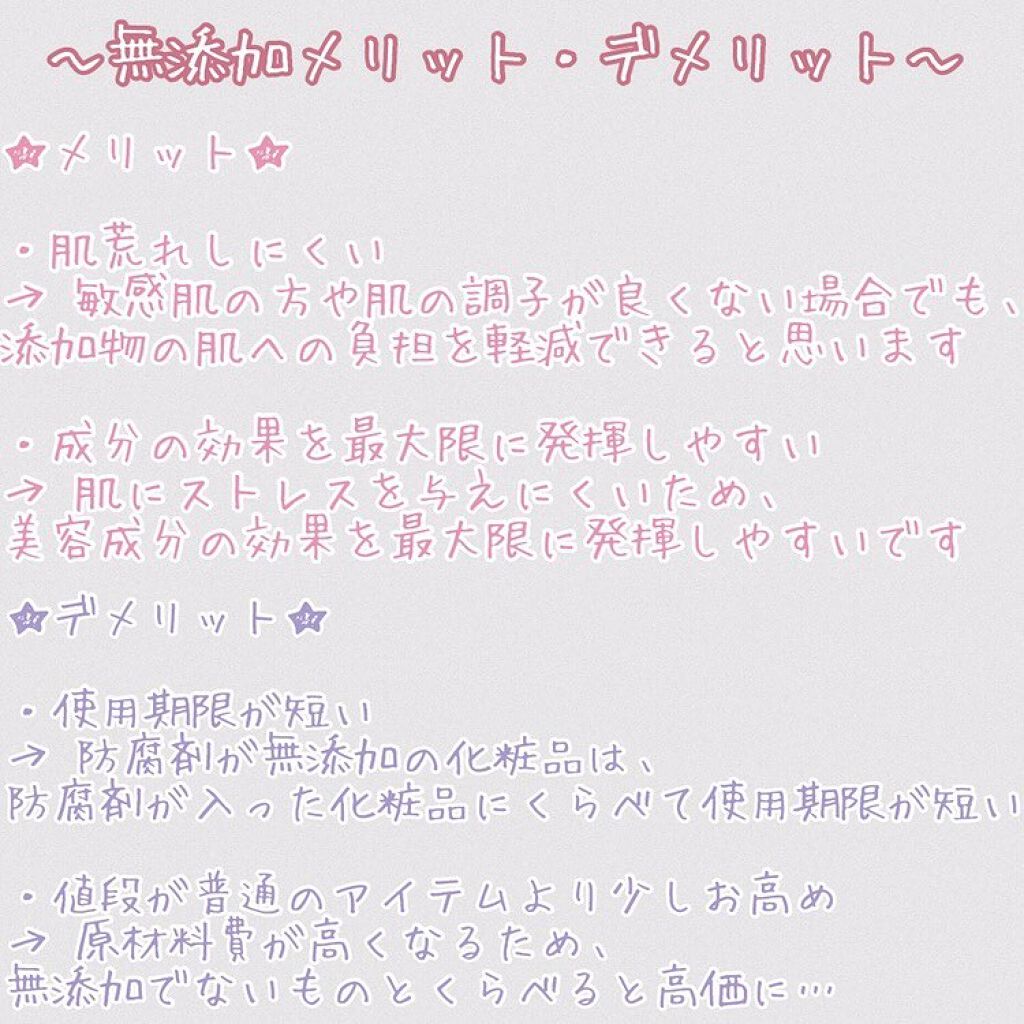 ～無添加メリット・デメリット～
★メリット★
・肌荒れしにくい
→ 敏感肌の方や肌の調子が良くない場合でも、
添加物の肌への負担を軽減できると思います
・成分の効果を最大限に発揮しやすい
→ 肌にストレスを与えにくいため、
美容成分の効果を最大限に発揮しやすいです
★デメリット★
・使用期限が短い
→ 防腐剤が無添加の化粧品は、
防腐剤が入った化粧品にくらべて使用期限が短い
・値段が普通のアイテムより少しお高め
→ 原材料費が高くなるため、
無添加でないものとくらべると高価に…